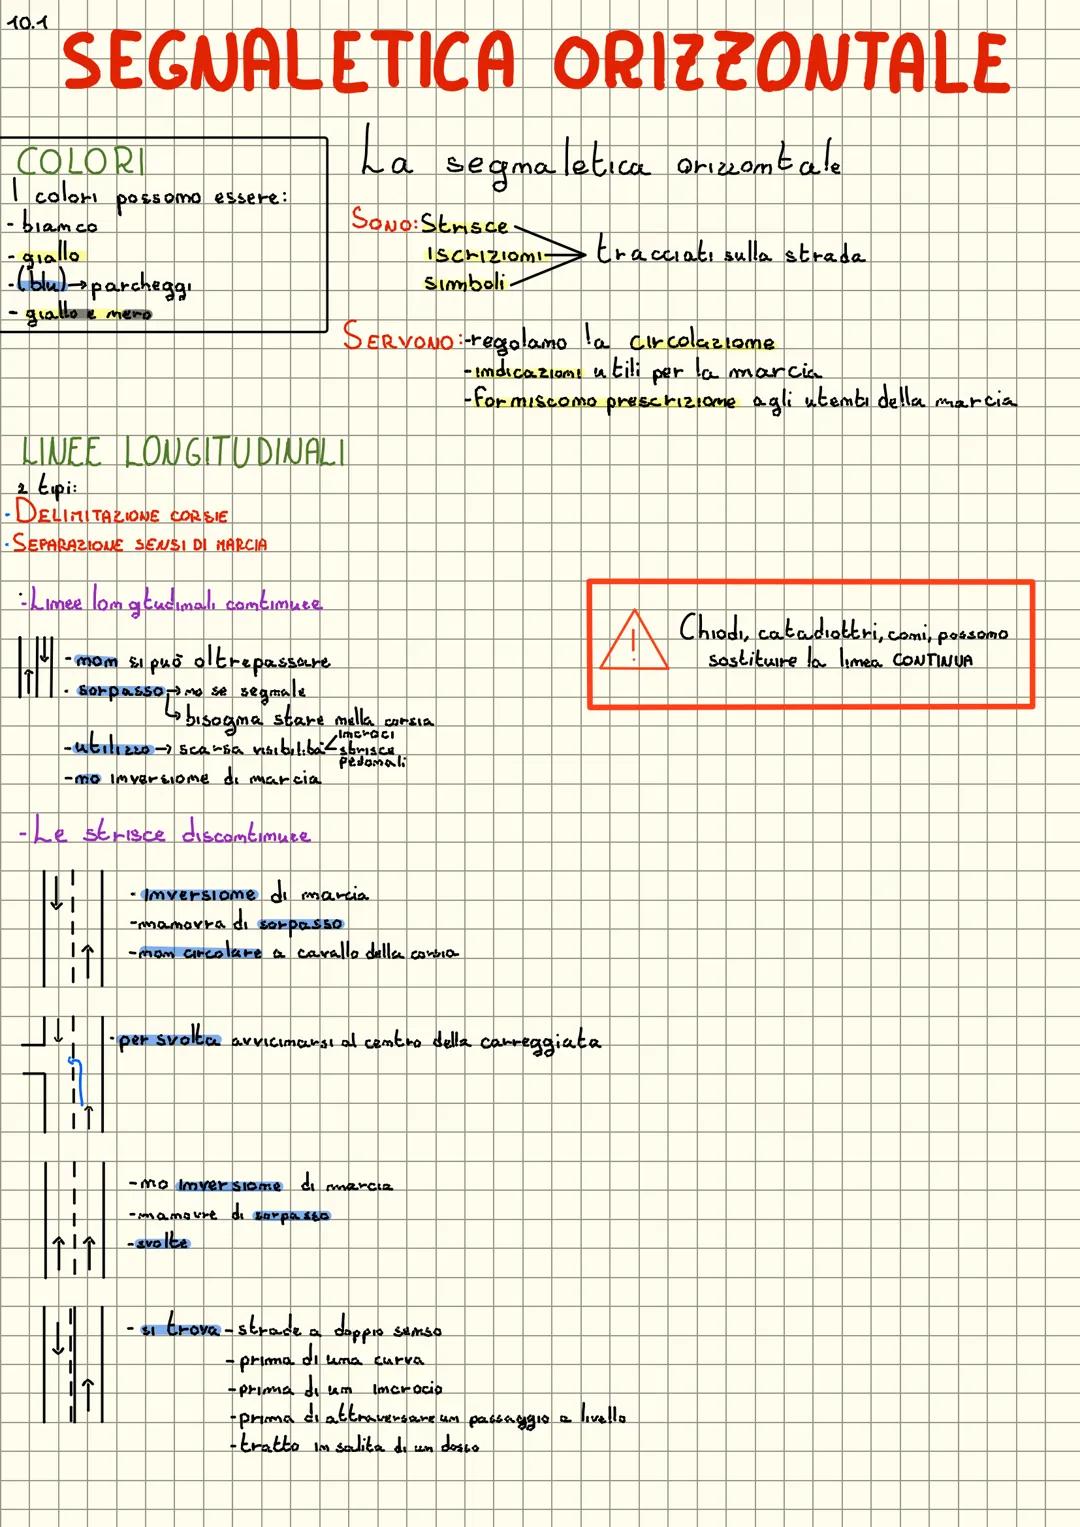 10.1
SEGNALETICA ORIZZONTALE
COLORI
I colori possono essere:
- bianco
- giallo
- (blu) → parcheggi
- giallo e nero
La segnaletica orizzontale
SONO: Strisce
Iscrizioni
simboli
tracciati sulla strada
SERVONO: -regolano la circolazione
-indicazioni utili per la marcia
-forniscono prescrizione agli utenti della marcia
LINEE LONGITUDINALI
2 tipi:
· DELIMITAZIONE CORSIE
· SEPARAZIONE SENSI DI MARCIA
- Linee longtudinali continuee
- non si può oltrepassare
· sorpasso → no se segnale
↳ bisogna stare nella corsia
- utilizzo → scarsa visibilità
incroci
strisce
pedonali
- no inversione di marcia
! Chiodi, catadiottri, coni, possono
sostituire la linea CONTINUA
- Le strisce discontinuee
- inversione di marcia
- manovra di sorpasso
- non circolare a cavallo della corsia
· per svolta avvicinarsi al centro della carreggiata
- no inversione di marcia
- manovre di sorpasso
- svolte
- si trova - strade a doppio senso
- prima di una curva
- prima di un incrocio
- prima di attraversare un passaggio a livello
- tratto in salita di un dosso